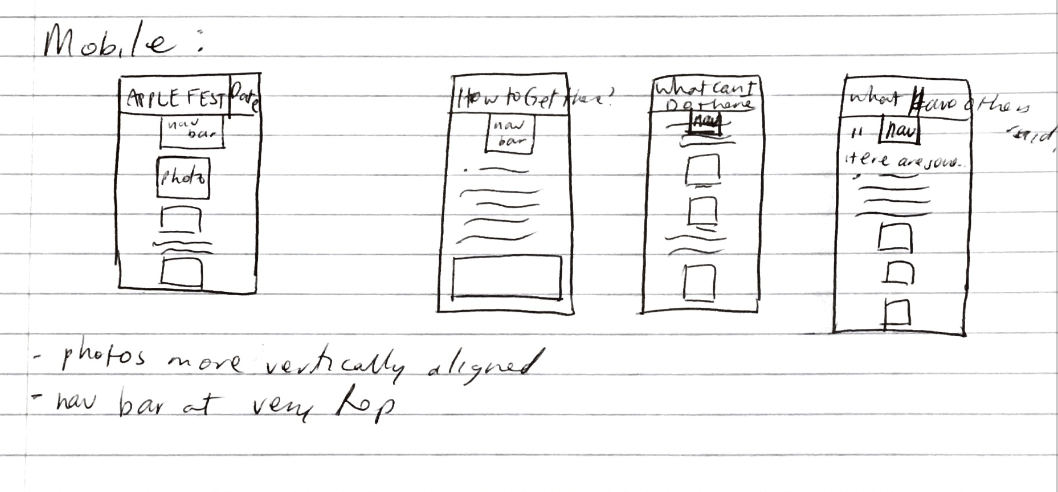 Mobile:
APPLE FEST Date
nav
bar
photo
How to Get there?
nav
bar
What can I
Do there
nav
What Have others
said
" nav
Here are some..
- photos more vertically aligned
- nav bar at very top